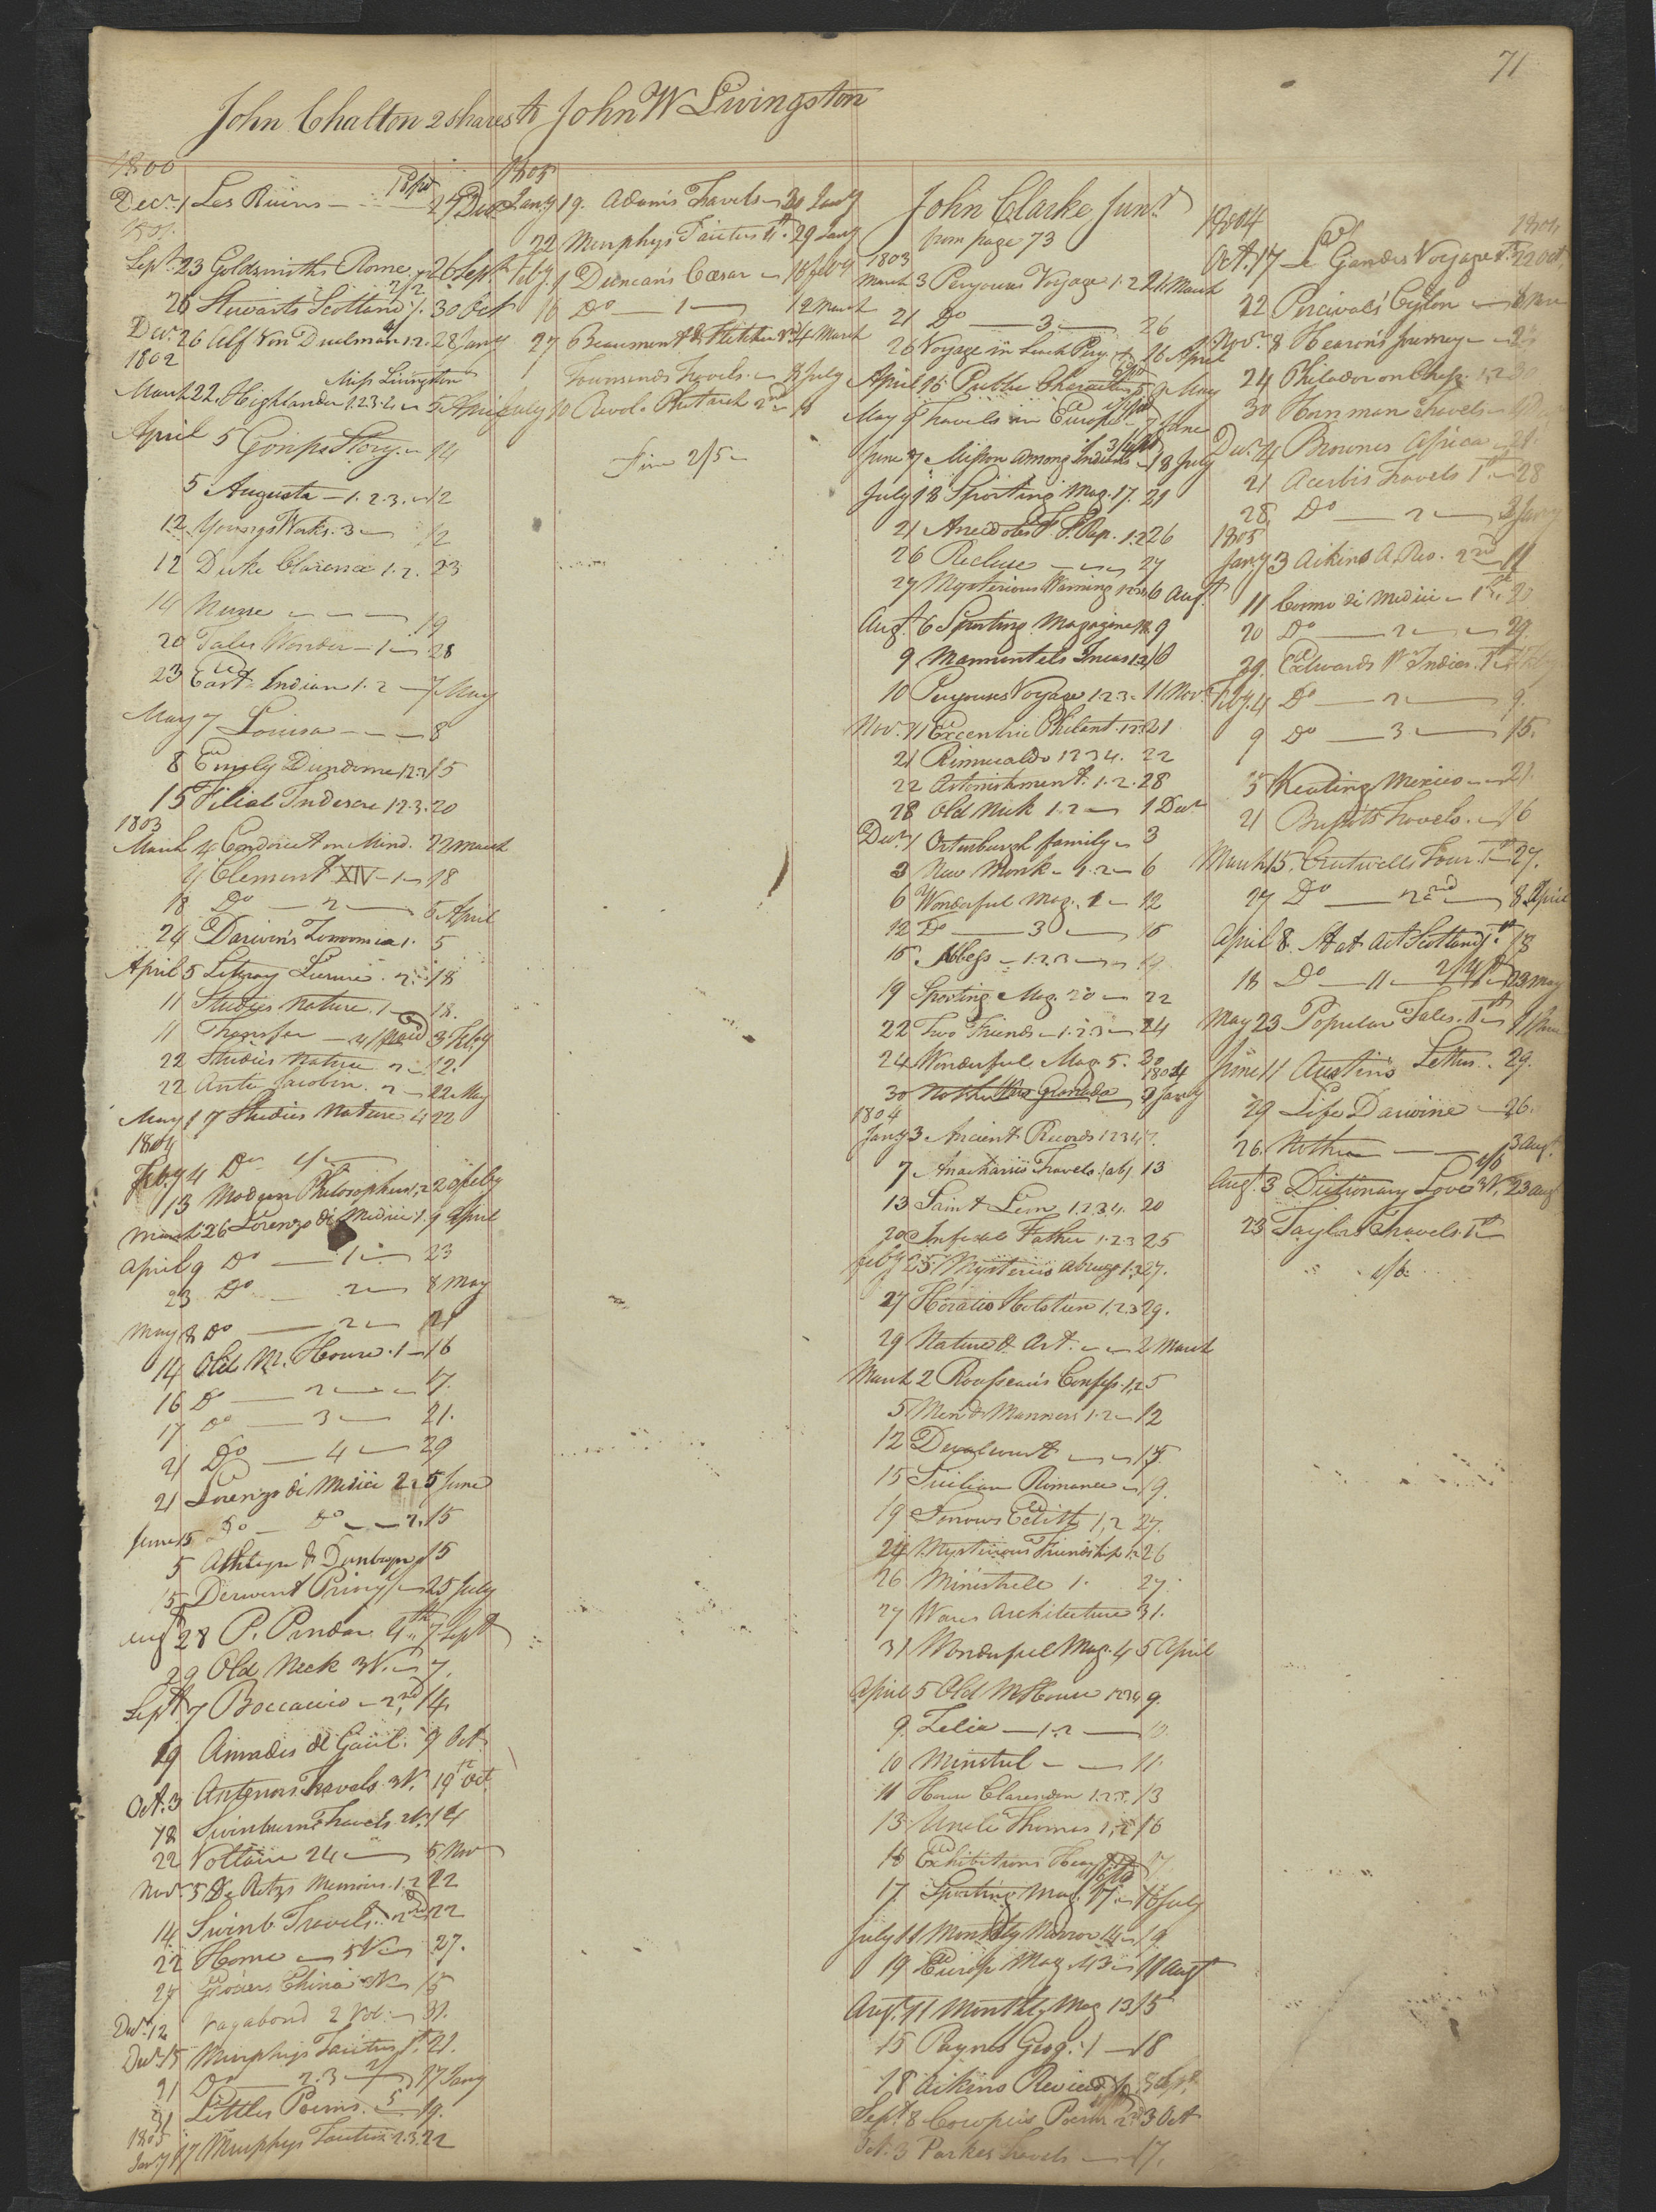 71
John Chalton 2 shares to John W Livingston
1800
Decr. 1 Les Ruins 24 Decr
Sept. 23 Goldsmiths Rome 26 Sept
26 Stewarts Scotland 1. 30 Oct
Decr. 26 Alf Von Duelman 1.2. 28 Jany
1802
Miss Livingston
March 22. Highlander 1.2. 5 April
April 5 Gossips Story 14
5 Augusta 1.2.3. 12
12 Youngs Works. 3 12
12 Duke Clarence 1.2. 23
14 Nurse 19
20 Tales Wonder 1 28
23 East Indian 1.2 7 May
May 7 Louisa 8
8 Emily Dundorne 1.2.3 15
15 Filial Indescre 1.2.3. 20
1803
March 4 Condorcet on Mind. 22 March
4 Clement XIV 1 18
18 Do 2 5 April
24 Darwin's Zoonomia 1. 5
April 5 Litrary Leisure. 2. 18
11 Studies Nature. 1 18.
11 Transfer paid 3 Feby
22 Studies Nature 2 12.
22 Anti Jacobin. 2 22 May
May 17 Studies Nature 4 22
1804
Feby 4 Do
13 Modern Philosophers 1,2 20 feby
March 26 Lorenzo di Medici 1. 9 April
April 9 Do 1 23
23 Do 2 8 May
May 8 Do 2 21
14 Old M. House. 1 16
16 Do 2 17.
17 Do 3 21.
21 Do 4 29
21 Lorenzo di Medici 2 5 June
June 5 Do Do 2. 15
5 Athlyn & Dunbayne 15
15 Derwent Priory 25 July
Augt 28 P. Pindar. 4th 7 Sept
29 Old Neck 3V. 7.
Sept. 7 Boccaccio 2nd 14
29 Amadis de Gaul. 9 Oct.
Oct. 3 Antenors Travels. 3V. 19 Oct.
18 Swinburnes Travels 14
22 Voltaire 24 5 Nov
Novr 5 De Retzs Memoirs. 1.2 22
14 Swinb. Travels. 2nd 22
22 Home 5V 27.
27 Grosiers China 15
Decr. 12 Vagabond 2 Vol. 31.
Decr. 15 Murphys Tacitus 1st. 21.
21 Do 2.3 17 Jany
31 Littles Poems. 19.
1805
Jany 17 Murphys Tacitus 2.3. 22
1805
Jany 19. Adams Travels 30 Jany
22 Murphys Tacitus 29 Jany
Feby. 1 Duncan's Cæsar 18 feby
16 Do 1 12 March
27 Beaumont & Fletcher 14 March
1 Townsends Travels. 8 July
July 10 Revol. Plutarch 2nd
Fine 2/5
John Clarke Junr.
from page 73
1803
March 3 Perouses Voyage 1.2 21 March
21 Do 3. 26
26 Voyage in Search Pery. 16 April
April 16 Public Characters 9 May
May 9 Travels in Europe 7 June
June 7 Mission among Indians 18 July
July 18 Sporting Mag. 17. 21
21 Anecdotes F. Rep. 1.2 26
26 Recluse 27
27 Mysterious Warning 6 Augt.
Augt. 6 Sporting Magazine 9
9 Marmontels Incas 1.2 16
10 Perouses Voyage 1.2.3. 11 Novr
Nov. 11 Excentric Philant. 1.2.3 21
21 Rimualdo 1234. 22
22 Astonishment. 1.2. 28
28 Old Nick 1.2 1 Decr
Decr. 1 Ortenburgh family 3
3 New Monk 1.2 6
6 Wonderful Mag. 1 12
12 Do 3 15
15 Abbess 1.2.3 19
19 Sporting Mag. 20 22
22 Two Friends 1.2.3 24
24 Wonderful Mag. 5. 30
1804
30 3 Jany
1804
Jany 3 Ancient Records 1234 7.
7 Anacharsis Travels. (ab) 13
13 Saint Leon 1.2.3.4. 20
20 Infidel Father 1.2.3 25
feby 25 Mysteries Abruzo 27.
27 Horatio Holstien 1.2.3 29.
29 Nature & Art. 2 March
March 2 Rousseau's Confess. 1,2 5
5 Men & Manners 1.2 12
12 Devalcourt 15
15 Sicilian Romance 19.
19 Sorrows Edith 1,2 27.
24 Mysterious Friendship 1.2 26
26 Minstrele 1. 27.
27 Wares Architecture 31.
31 Wonderful Mag. 4 5 April
April 5 Old M House 1234 9.
9 Zelia 1.2 10.
10 Minstrel 11.
11 House Clarendon 1.2.3. 13
13 Uncle Thomas 1,2 16
16 Exhibitions Heart 17
17 Sporting Mag. 17. 18 July
July 11 Monthly Mirror 14 19
19 Europ Mag. 43 11 Augt
Augt. 11 Monthly Mag 13 15
15 Paynes Geog. 1 18
18 Aikins Review 8 Sept.
Sept. 8 Cowpers Poems 2nd 3 Oct
Oct. 3 Parkes Travels 17.
1804
Oct. 17 Le Gandes Voyage 22 Oct.
22 Percivals Ceylon 8 Nov
Novr. 8 Hearon's Journey 24
24 Philador on Chess. 1,2 30
30 Hornman Travels 4 Decr
Decr. 4 Brownes Africa 21.
21 Acerbis Travels 1st. 28
28 Do 2 3 Jany
1805
Jany 3 Aikins A. Rev. 2nd 11
11 Cosmo di Medici 1st. 20
20 Do 2 29.
29. Edwards W. Indies. 1st
Feby. 4 Do 2 9.
9 Do 3 15.
15 Keating Mexico 21.
21 Travels. 16
March 15. Crutwells Tour. 1st 27.
27 Do 2nd 8 April
April 8. Stat Act Scotland 1st. 18
18 Do 11 23 May
May 23 Popular Tales. 1st 11 June
June 11 Austin's Letters. 29.
29 Life Darwine 26.
26. Nothing 3 Augt.
Augt. 3 Dictionary Love 3V. 23 Augt
23 Taylors Travels 1st